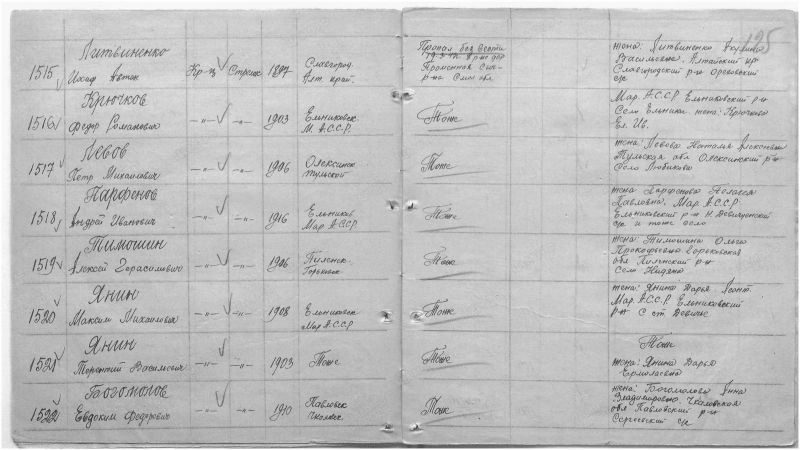 125
1515
Литвиненко
Иосиф Антон.
Кр-ц
Стрелк
1897
Славгород.
Алт край.
Пропал без вести
жена: Литвиненко Акулина
Васильевна. Алтайский кр
Славгородский р-н Ореховский
с/с
1516
Крючков
Федор Романович
-"-
-"-
1903
Ельниковск
М. А.С.С.Р.
Тоже
Мар. А.С.С.Р. Ельниковский р-н
Село Ельники жена: Крючкова
Ел. Ив.
1517
Левов
Петр Михайлович
-"-
-"-
1906
Олексинск
Тульской
Тоже
жена: Левова Наталья Алексеевна
Тульская обл Олексинский р-н
Село
1518
Парфенов
Андрей Иванович
-"-
-"-
1916
Ельников
Мар А.С.С.Р.
Тоже
жена Парфенова Пелагея
Павловна. Мар А.С.С.Р
Ельниковский р-н Н. Девиченский
с/с и тоже село
1519
Тимошин
Алексей Герасимович
-"-
-"-
1906
Пиленск
Горьковск
Тоже
жена: Тимошина Ольга
Прокофьевна Горьковская
обл Пиленский р-н
Село
1520
Янин
Максим Михайлович
-"-
-"-
1908
Ельниковск
Мар А.С.С.Р.
Тоже
жена: Янина Дарья Леонт.
Мар. А.С.С.Р. Ельниковский
р-н С ст Девичье
1521
Янин
Терентий Васильевич
-"-
-"-
1903
Тоже
Тоже
Тоже
жена: Янина Дарья
Ермолаевна
1522
Богомолов
Евдоким Федорович
-"-
-"-
1910
Павловск
Чкаловск
Тоже
жена: Богомолова Анна
Владимировна. Чкаловская
обл Павловский р-н
Сергиевский с/с